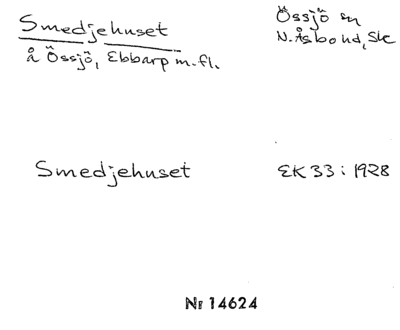 Smedjehuset
å Össjö, Ebbarp m.fl.
Össjö sn
N. Åsbo hd, Sk
Smedjehuset
EK 33 : 1928
Nr 14624